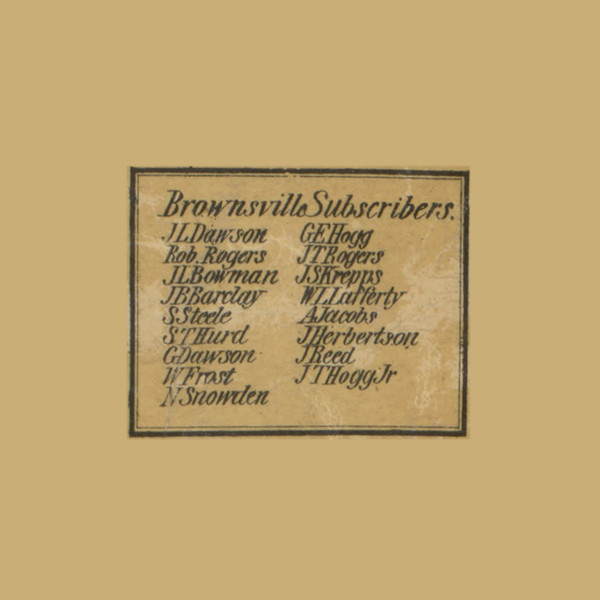 Brownsville Subscribers.
J L Dawson
Rob. Rogers
J L Bowman
J B Barclay
S Steele
S T Hurd
G Dawson
W Frost
N Snowden
G E Hogg
J T Rogers
J S Krepps
W L Lafferty
A Jacobs
J Herbertson
J Reed
J T Hogg Jr